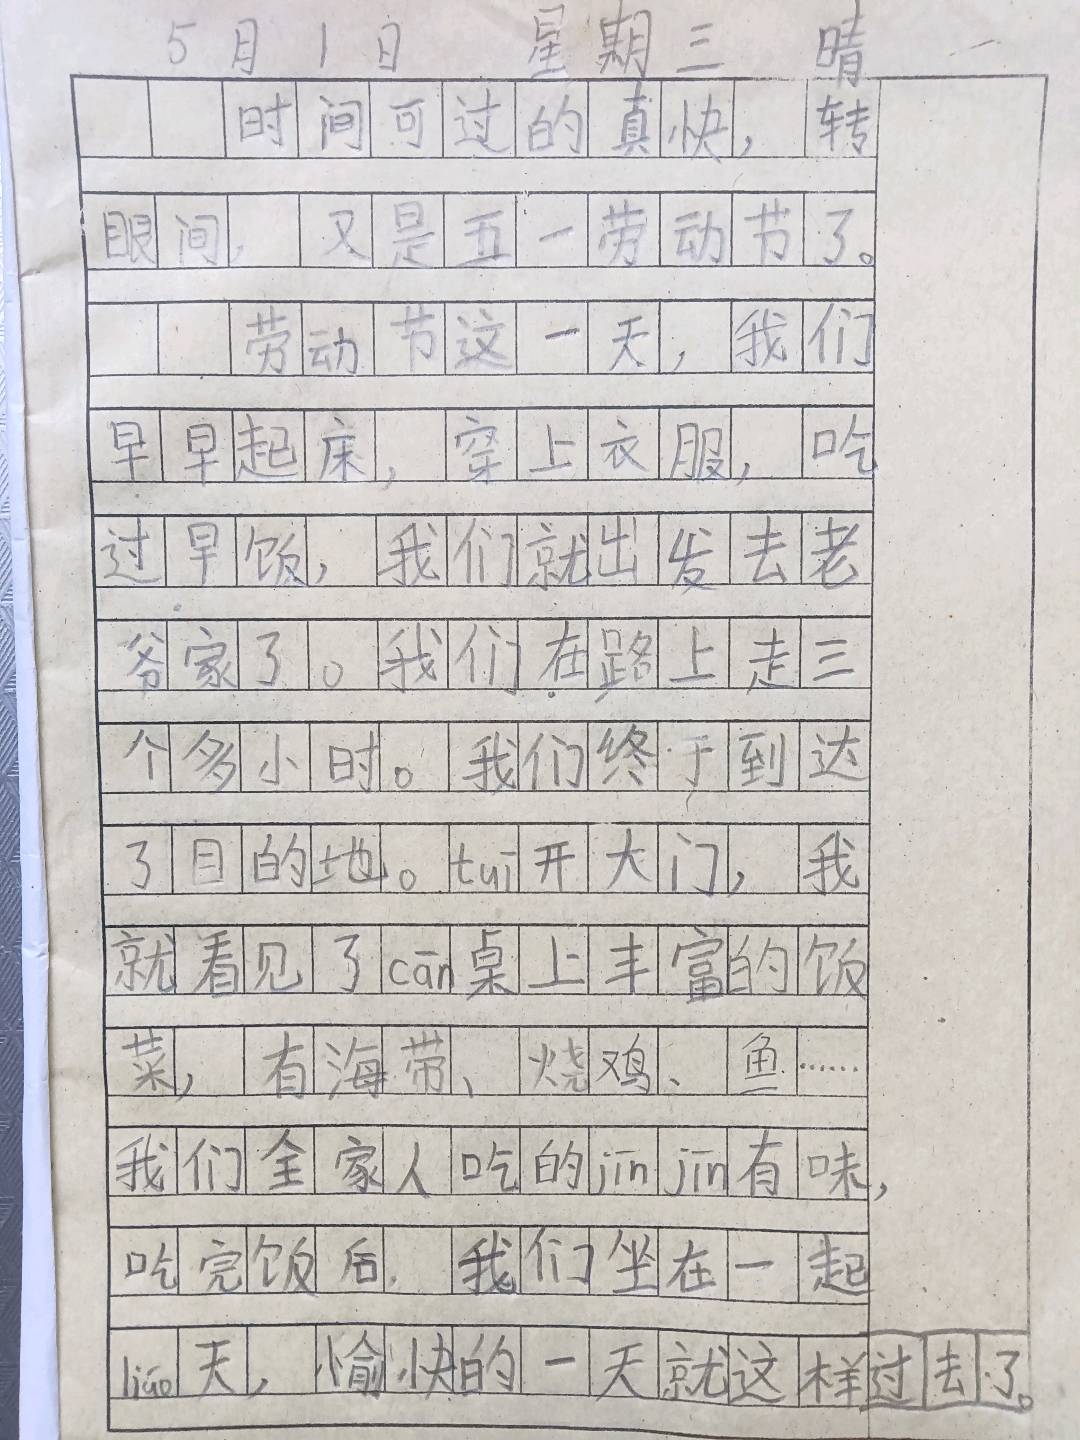 5月1日 星期三 晴
时间可过的真快，转
眼间，又是五一劳动节了。
劳动节这一天，我们
早早起床，穿上衣服，吃
过早饭，我们就出发去老
爷家了。我们在路上走三
个多小时。我们终于到达
了目的地。tuī开大门，我
就看见了cān桌上丰富的饭
菜，有海带、烧鸡、鱼……
我们全家人吃的jīn jīn有味，
吃完饭后，我们坐在一起
liáo天，愉快的一天就这样过去了。